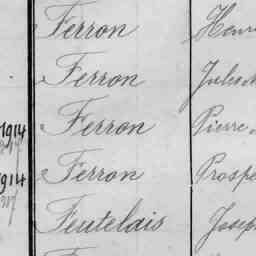 Ferron Henri
Ferron Jules
1914 Ferron Pierre
1914 Ferron Prospe
Feutelais Josep